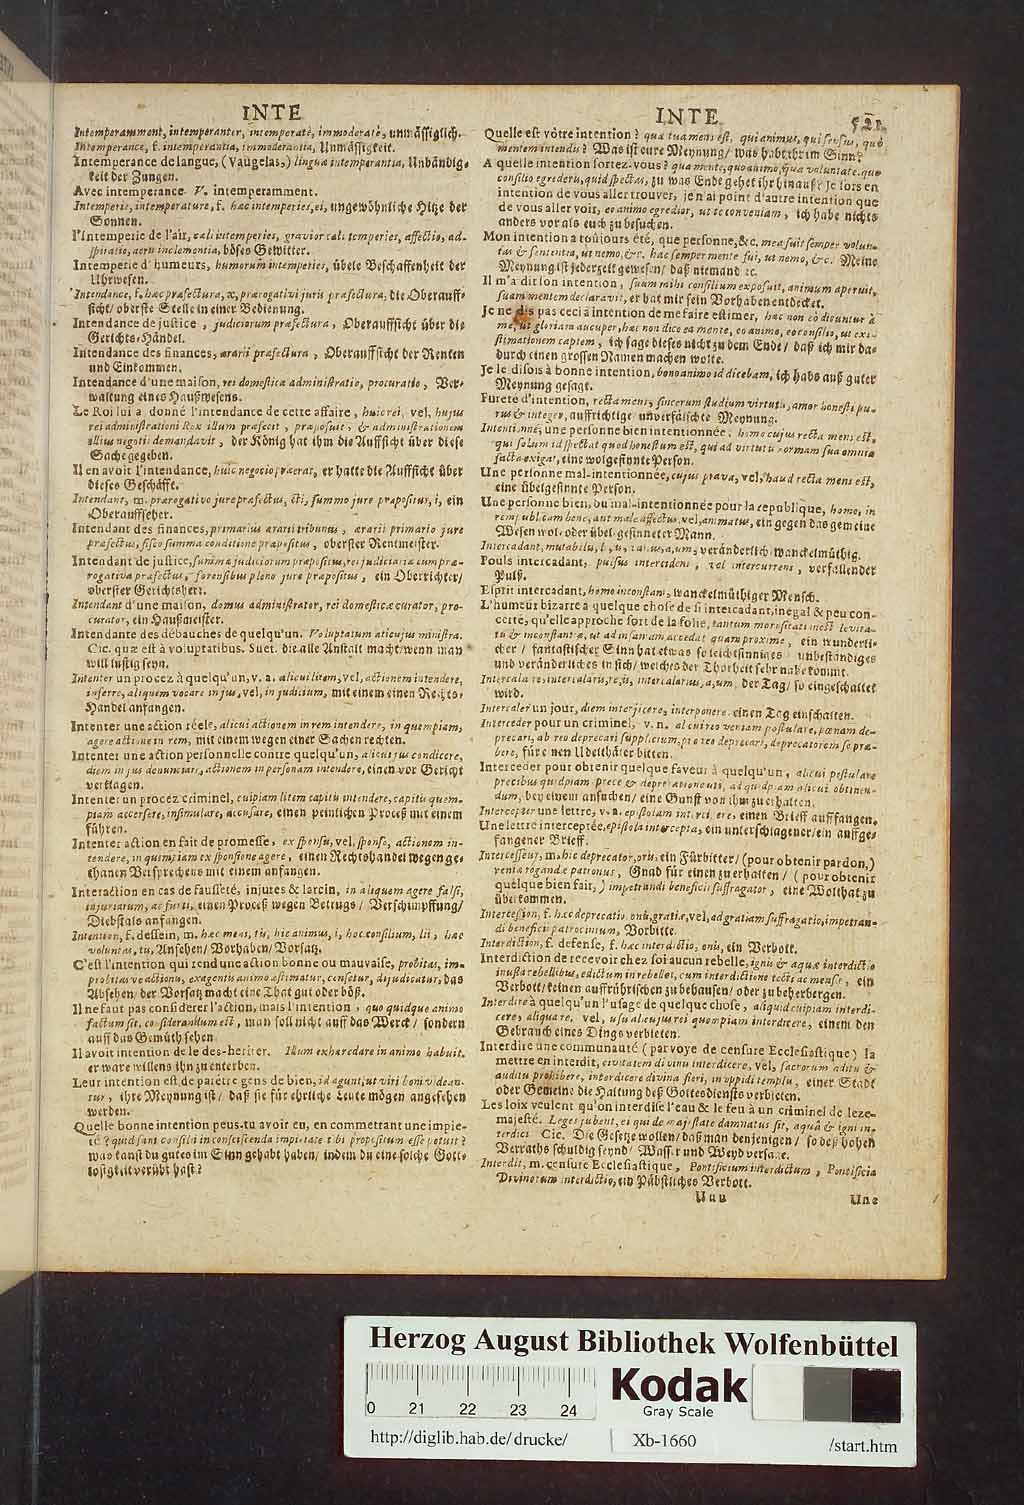 INTE
Intemperamment, intemperanter, intemperatè, immoderatè, unmässiglich.
Intemperance, f. intemperantia, immoderantia, Unmässigkeit.
Intemperance de langue, (Vaugelas,) linguæ intemperantia, Unbändig-
keit der Zungen.
Avec intemperance. V. intemperamment.
Intemperie, intemperature, f. hæc intemperies, ei, ungewöhnliche Hitze der
Sonnen.
l'Intemperie de l'air, cæli intemperies, gravior cæli temperies, affectio, ad-
spiratio, aeris inclementia, böses Gewitter.
Intemperie d'humeurs, humorum intemperies, übele Beschaffenheit der
Uhrwesen.
Intendance, f. hæc præfectura, æ, prærogativi juris præfectura, die Oberauff-
sicht/ oberste Stelle in einer Bedienung.
Intendance de justice, judiciorum præfectura, Oberauffsicht über die
Gerichts-Händel.
Intendance des finances, ærarii præfectura, Oberauffsicht der Renten
und Einkommen.
Intendance d'une maison, rei domesticæ administratio, procuratio, Ver-
waltung eines Haußwesens.
Le Roi lui a donné l'intendance de cette affaire, huic rei, vel, hujus
rei administrationi Rex illum præfecit, præposuit, & administrationem
illius negotii demandavit, der König hat ihm die Auffsicht über diese
Sache gegeben.
Il en avoit l'intendance, huic negocio præerat, er hatte die Auffsicht über
dieses Geschäfft.
Intendant, m. prærogativo jure præfectus, cti, summo jure præpositus, i, ein
Oberauffseher.
Intendant des finances, primarius ærarii tribunus, ærarii primario jure
præfectus, fisco summa conditione præpositus, oberster Rentmeister.
Intendant de justice, summa judiciorum præpositus, rei judiciariæ cum præ-
rogativa præfectus, forensibus pleno jure præpositus, ein Oberrichter/
oberster Gerichtsherr.
Intendant d'une maison, domus administrator, rei domesticæ curator, pro-
curator, ein Haußmeister.
Intendante des débauches de quelqu'un. Voluptatum alicujus ministra.
Cic. quæ est à voluptatibus. Suet. die alle Anstalt macht/ wenn man
will lustig seyn.
Intenter un procez à quelqu'un, v. a. alicui litem, vel, actionem intendere,
inferre, aliquem vocare in jus, vel, in judicium, mit einem einen Rechts-
Handel anfangen.
Intenter une action réele, alicui actionem in rem intendere, in quempiam,
agere actione in rem, mit einem wegen einer Sachen rechten.
Intenter une action personnelle contre quelqu'un, alicui jus condicere,
diem in jus denunciare, actionem in personam intendere, einen vor Gericht
verklagen.
Intenter un procez criminel, cuipiam litem capitis intendere, capitis quem-
piam accersere, insimulare, accusare, einen peinlichen Proceß mit einem
führen.
Intenter action en fait de promesse, ex sponsu, vel, sponso, actionem in-
tendere, in quempiam ex sponsione agere, einen Rechtshandel wegen ge-
thanen Versprechens mit einem anfangen.
Interaction en cas de fausseté, injures & larcin, in aliquem agere falsi,
injuriarum, ac furti, einen Proceß wegen Betrugs/ Verschimpffung/
Diebstals anfangen.
Intention, f. dessein, m. hæc mens, tis, hic animus, i, hoc consilium, lii, hæc
voluntas, tis, Ansehen/ Vorhaben/ Vorsatz.
C'est l'intention qui rend une action bonne ou mauvaise, probitas, im-
probitasve actionis, ex agentis animo æstimatur, censetur, dijudicatur, das
Absehen/ der Vorsatz macht eine That gut oder böß.
Il ne faut pas considerer l'action, mais l'intention, quo quidque animo
factum sit, considerandum est, man soll nicht auff das Werck/ sondern
auff das Gemüth sehen.
Il avoit intention de le des-heriter. Illum exhæredare in animo habuit.
er ware willens ihn zu enterben.
Leur intention est de paretre gens de bien, id agunt, ut viri boni videan-
tur, ihre Meynung ist/ daß sie für ehrliche Leute mögen angesehen
werden.
Quelle bonne intention peus-tu avoir eu, en commettant une impie-
té? quid sani consilii in consciscenda impietate tibi propositum esse potuit?
was kanst du gutes im Sinn gehabt haben/ indem du eine solche Gott-
losigkeit verübt hast?
INTE 521
Quelle est vôtre intention? quæ tua mens est, qui animus, qui sensus, quò
mentem intendis? Was ist eure Meynung/ was habt ihr im Sinn?
A quelle intention sortez-vous? qua mente, quo animo, qua voluntate, quo
consilio egrederis, quid spectas, zu was Ende gehet ihr hinauß? Je sors en
intention de vous aller trouver, je n'ai point d'autre intention que
de vous aller voir, eo animo egredior, ut te conveniam, ich habe nichts
anders vor als euch zu besuchen.
Mon intention a toûjours été, que personne, &c. mea fuit semper volun-
tas & sententia, ut nemo, &c. hac semper mente fui, ut nemo, &c. Meine
Meynung ist jederzeit gewesen/ daß niemand ꝛc.
Il m'a dit son intention, suum mihi consilium exposuit, animum aperuit,
suam mentem declaravit, er hat mir sein Vorhaben entdecket.
Je ne dis pas ceci à intention de me faire estimer, hæc non eò dicuntur à
me, ut gloriam aucuper, hæc non dico ea mente, eo animo, eo consilio, ut exi-
stimationem captem, ich sage dieses nicht zu dem Ende/ daß ich mir da-
durch einen grossen Namen machen wolte.
Je le disois à bonne intention, bono animo id dicebam, ich habs auß guter
Meynung gesagt.
Pureté d'intention, recta mens, sincerum studium virtutis, amor honesti pu-
rus & integer, auffrichtige unverfälschte Meynung.
Intentionné, une personne bien intentionnée. homo cujus recta mens est,
qui solum id spectat quod honestum est, qui ad virtutis normam sua omnia
facta exigat, eine wolgesinnte Person.
Une personne mal-intentionnée, cujus prava, vel, haud recta mens est,
eine übelgesinnte Person.
Une personne bien, ou mal-intentionnée pour la republique, homo, in
rempublicam bene, aut male affectus, vel, animatus, ein gegen das gemeine
Wesen wol- oder übel-gesinneter Mann.
Intercadant, mutabilis, le, varius, a, um, veränderlich, wanckelmüthig.
Pouls intercadant, pulsus intercidens, vel intercurrens, verfallender
Pulß.
Esprit intercadant, homo inconstans, wanckelmüthiger Mensch.
L'humeur bizarre a quelque chose de si intercadant, inegal & peu con-
certé, qu'elle approche fort de la folie, tantum morositati inest levita-
tis & inconstantiæ, ut ad insaniam accedat quam proxime, ein wunderli-
cher/ fantastischer Sinn hat etwas so leichtsinniges/ unbeständiges
und veränderliches in sich/ welches der Thorheit sehr nahe kommt.
Intercalaire, intercalaris, re, is, intercalarius, a, um, der Tag/ so eingeschaltet
wird.
Intercaler un jour, diem interjicere, interponere. einen Tag einschalten.
Interceder pour un criminel, v. n. alicui reo veniam postulare, pœnam de-
precari, ab reo deprecari supplicium, pro reo deprecari, deprecatorem se præ-
bere, für einen Ubelthäter bitten.
Interceder pour obtenir quelque faveur à quelqu'un, alicui postulare
precibus quidpiam prece & deprecatione uti, ad quidpiam alicui obtinen-
dum, bey einem ansuchen/ eine Gunst von ihm zu erhalten.
Intercepter une lettre, v. a. epistolam intercipere, einen Brieff auffangen.
Une lettre interceptée, epistola intercepta, ein unterschlagener/ ein auffge-
fangener Brieff.
Intercesseur, m. hic deprecator, oris, ein Fürbitter/ (pour obtenir pardon,)
veniæ rogandæ patronus, Gnad für einen zu erhalten/ (pour obtenir
quelque bien fait,) impetrandi beneficii suffragator, eine Wolthat zu
überkommen.
Intercession, f. hæc deprecatio, onis, gratiæ, vel, ad gratiam suffragatio, impetran-
di beneficii patrocinium, Vorbitte.
Interdiction, f. defense, f. hæc interdictio, onis, ein Verbott.
Interdiction de recevoir chez soi aucun rebelle, ignis & aquæ interdictio
inusta rebellibus, edictum in rebelles, cum interdictione tecti ac mensæ, ein
Verbott/ keinen auffrührischen zu behausen/ oder zu beherbergen.
Interdire à quelqu'un l'usage de quelque chose, aliquid cuipiam interdi-
cere, aliquare. vel, usu alicujus rei quempiam interdicere, einem den
Gebrauch eines Dings verbieten.
Interdire une communauté (par voye de censure Ecclesiastique) la
mettre en interdit, civitatem divinis interdicere, vel, sacrorum aditu &
auditu prohibere, interdicere divina fieri, in oppidi templis, einer Stadt
oder Gemeine die Haltung deß Gottesdiensts verbieten.
Les loix veulent qu'on interdise l'eau & le feu à un criminel de leze-
majesté. Leges jubent, ei qui de majestate damnatus sit, aquâ & igni in-
terdici. Cic. Die Gesetze wollen/ daß man denjenigen/ so deß hohen
Verraths schuldig seynd/ Wasser und Weyd versage.
Interdit, m. censure Ecclesiastique, Pontificium interdictum, Pontificia
Divinorum interdictio, ein Päbstliches Verbott.
Uuu Une
Herzog August Bibliothek Wolfenbüttel
0 21 22 23 24
Kodak
Gray Scale
http://diglib.hab.de/drucke/ Xb-1660 /start.htm